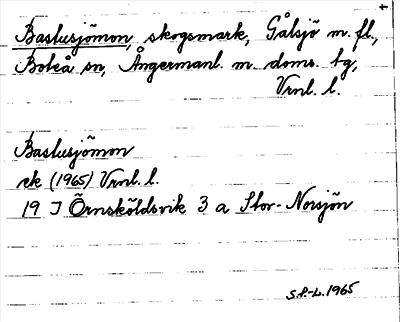 Bastusjömon, skogsmark, Gålsjö m. fl.,
Boteå sn, Ångermanl. m. doms. tg,
Vrnl. l.
Bastusjömon
ek (1965) Vrnl. l.
19 J Örnsköldsvik 3 a Stor-Norsjön
S.P.-L. 1965